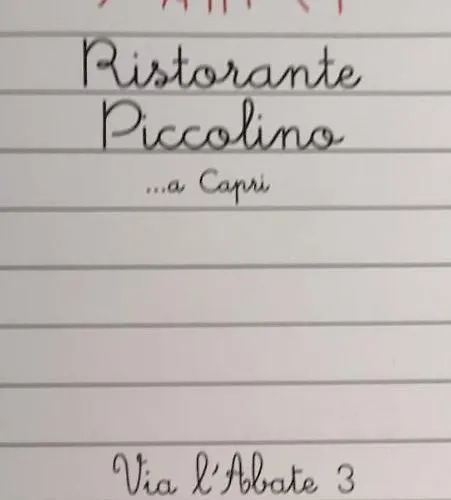 Ristorante
Piccolino
...a Capri
Via l'Abate 3